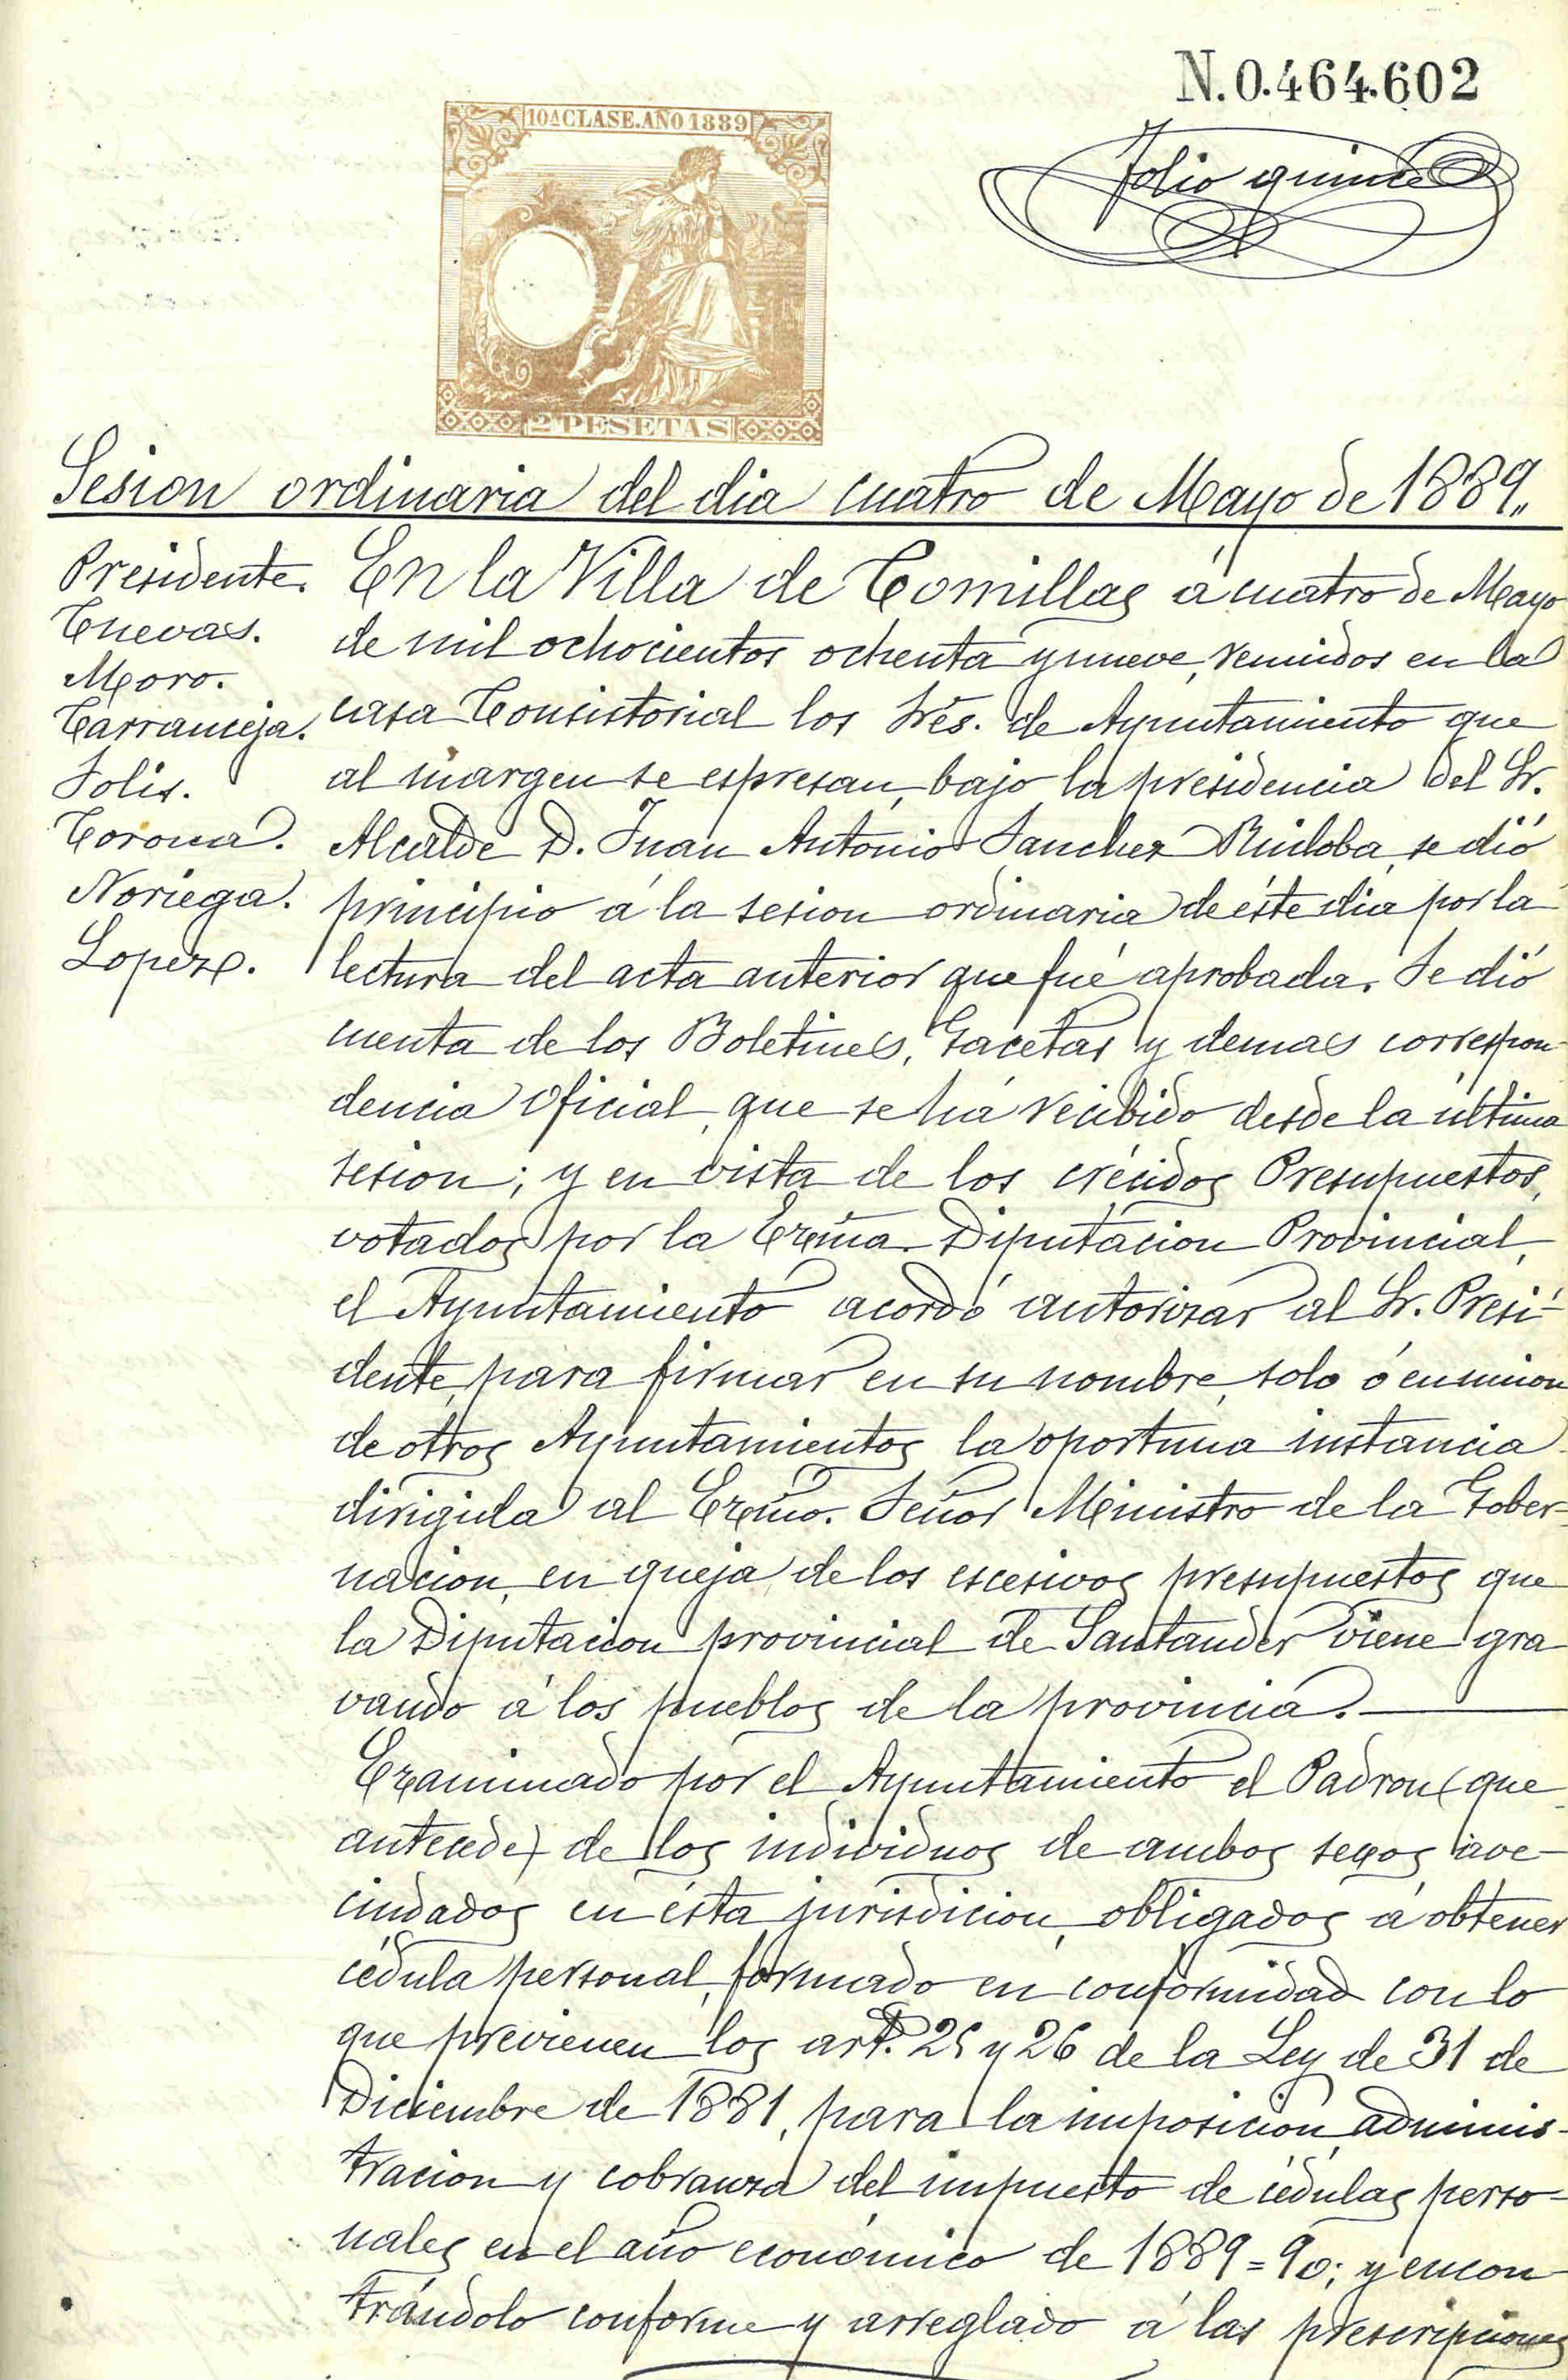 N.0.464.602
10ª CLASE.AÑO 1889
Folio quince
2 PESETAS
Sesion ordinaria del dia cuatro de Mayo de 1889.,
Presidente.
Cuevas.
Moro.
Carranceja.
Solis.
Corona.
Noriega.
Lopez.
En la Villa de Comillas á cuatro de Mayo
de mil ochocientos ochenta y nueve, reunidos en la
casa Consistorial los Srés. de Ayuntamiento que
al márgen se espresan, bajo la presidencia del Sr.
Alcalde D. Juan Antonio Sanchez Ruiloba, se dió
principio á la sesion ordinaria de éste dia por la
lectura del acta anterior que fué aprobada. Se dió
cuenta de los Boletines, Gacetas y demas correspon-
dencia oficial, que se há recibido desde la última
sesion; y en vista de los crécidos Presupuestos,
votados por la Exma. Diputacion Provincial,
el Ayuntamiento acordó autorizar al Sr. Presi-
dente, para firmar en su nombre, solo ó en union
de otros Ayuntamientos la oportuna instancia
dirigida al Exmo. Señor Ministro de la Gober=
nacion, en queja de los escesivos presupuestos que
la Diputacion provincial de Santander viene gra
vando á los pueblos de la provincia.
Examinado por el Ayuntamiento el Padron (que
antecede) de los individuos de ambos sexos, ave-
cindados en ésta jurisdicion, obligados á obtener
cédula personal, formado en conformidad con lo
que previenen los art.s 25 y 26 de la Ley de 31 de
Diciembre de 1881, para la imposicion, adminis-
tracion y cobranza del impuesto de cédulas perso=
nales en el año económico de 1889=90; y encon-
trándolo conforme y arreglado á las prescripciones